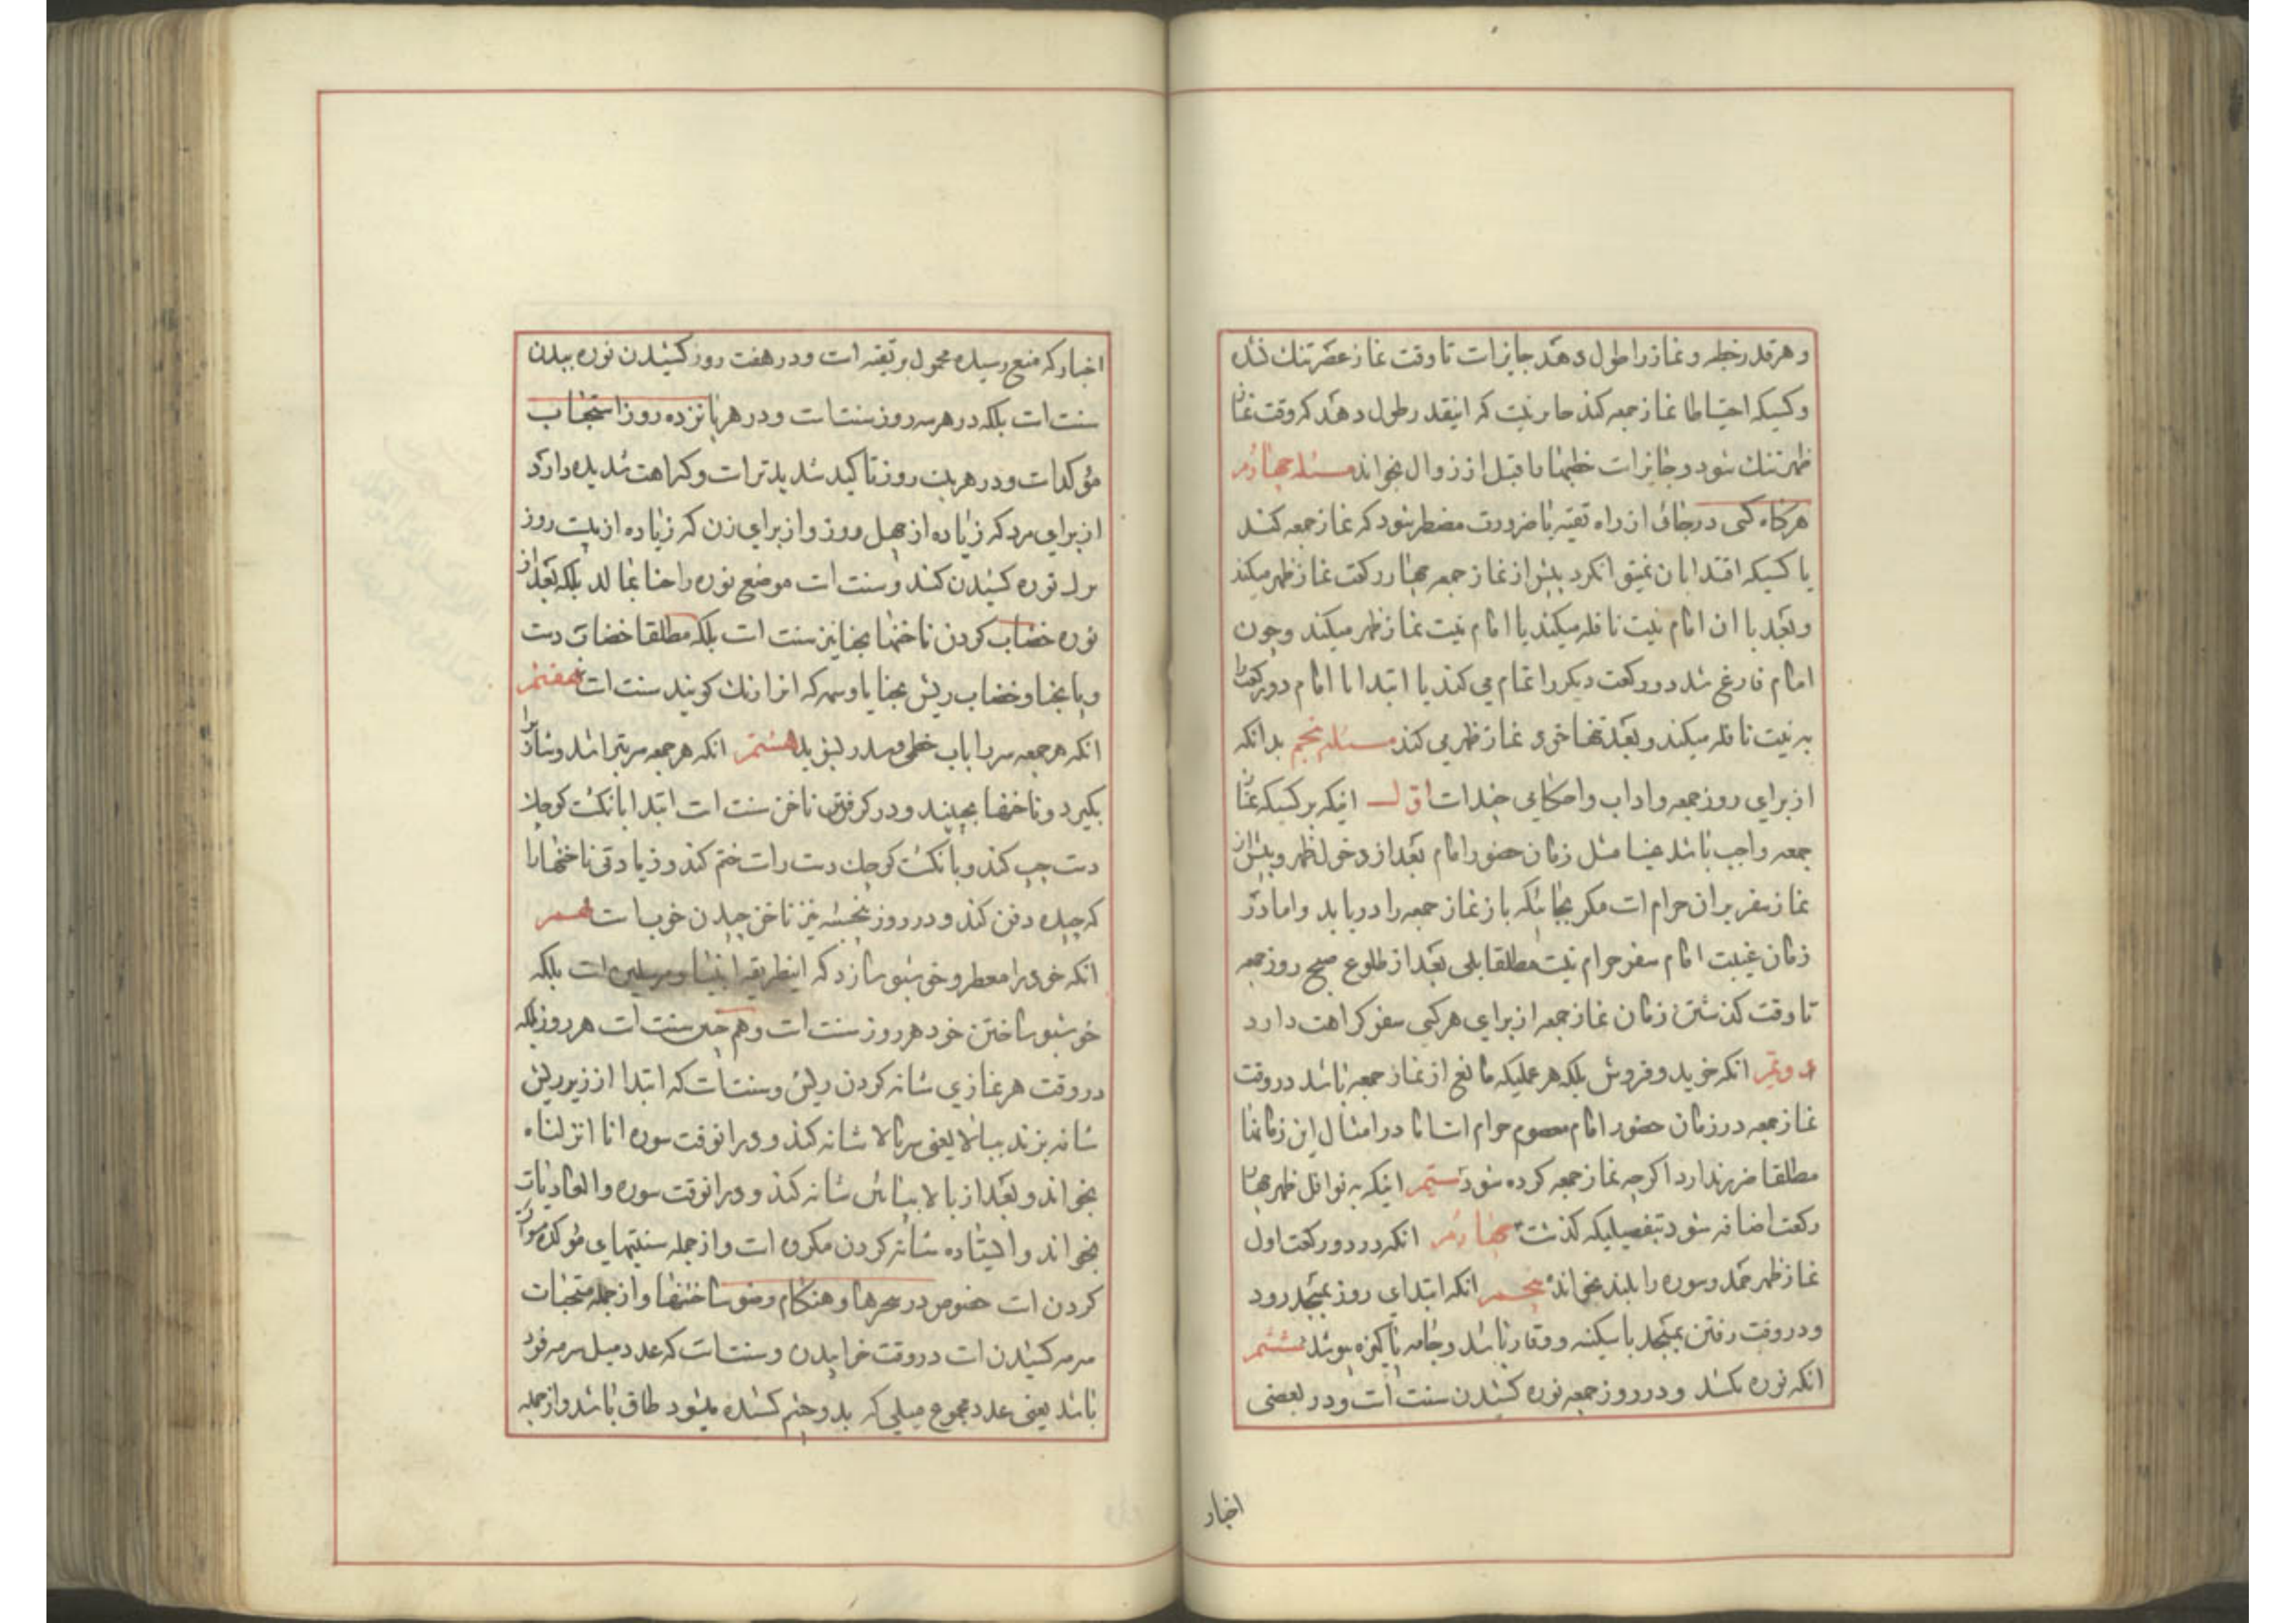 و هر قدر خطبه و نماز را طول دهد جایز است تا وقت نماز عصر تنك نشده
و کسیکه احتیاطا نماز جمعه کند جایز نیت که اینقدر طول دهد که وقت نماز
ظهر تنك شود و جایز است خطبها را قبل از زوال بخواند مسئله چهارم
هرکاه کسی در جائی از راه تقیه یا ضرورت مضطر شود که نماز جمعه کند
یا کسیکه اقتدا بان نمیتوان کرد پیش از نماز جمعه چهار رکعت نماز ظهر میکند
و بعد با ان امام نیت نافله میکند یا با امام نیت نماز ظهر میکند و چون
امام فارغ شد دو رکعت دیکر را تمام می کند یا ابتدا با امام دو رکعت را
به نیت نافله میکند و بعد تنها خود نماز ظهر می کند مسئله پنجم بدانکه
از برای روز جمعه و اداب و احکامی چند است اول اینکه بر کسیکه نماز
جمعه واجب باشد عینا مثل زمان حضور امام بعد از دخول ظهر و پیش از
نماز سفر بر ان حرام است مکر بجائیکه باز نماز جمعه را دریابد و اما در
زمان غیبت امام سفر حرام نیت مطلقا بلی بعد از طلوع صبح روز جمعه
تا وقت کذشتن زمان نماز جمعه از برای هر کس سفر کراهت دارد
دویم انکه خرید و فروش بلکه هر عملیکه مانع از نماز جمعه باشد در وقت
نماز جمعه در زمان حضور امام معصوم حرام است اما در امثال این زمانها
مطلقا ضرر ندارد اکرچه نماز جمعه کرده شود سیم اینکه به نوافل ظهر چهار
رکعت اضافه شود بتفصیلیکه کذشت چهارم انکه در دو رکعت اول
نماز ظهر حمد و سوره را بلند بخواند پنجم انکه ابتدای روز بمسجد رود
و در وقت رفتن بمسجد با سکینه و وقار باشد و جامه پاکیزه بپوشد ششم
انکه نوره بکشد و در روز جمعه نوره کشیدن سنت است و در بعضی
اخبار
اخبار که منع رسیده محمول بر تقیه است و در هفت روز کشیدن نوره ببدن
سنت است بلکه در هر سه روز سنت است و در هر پانزده روز استحباب
مؤکد است و در هر بیست روز تاکید شدیدتر است و کراهت شدیده دارد
از برای مرد که زیاده از چهل روز و از برای زن که زیاده از بیست روز
ترك نوره کشیدن کند و سنت است موضع نوره را حنا بمالد بلکه بعد از
نوره خضاب کردن ناخنها بحنا نیز سنت است بلکه مطلقا خضاب دست
و پا بحنا و خضاب ریش بحنا یا وسمه که انرا رنك کویند سنت است هفتم
انکه هر جمعه سر را باب خطمی و سدر بشوید هشتم انکه هر جمعه سر بتراشد و شارب را
بکیرد و ناخنها بچیند و در کرفتن ناخن سنت است ابتدا بانکشت کوچك
دست چپ کند و بانکشت کوچك دست راست ختم کند و زیادتی ناخنها را
که چیده دفن کند و در روز پنجشنبه نیز ناخن چیدن خوبست نهم
انکه خود را معطر و خوشبو سازد که اینطریقه انبیا و مرسلین است بلکه
خوشبو ساختن خود هر روز سنت است و هم چنین سنت است هر روز بلکه
در وقت هر نمازی شانه کردن ریش و سنت است که ابتدا از زیر ریش
شانه بزند ببالا یعنی سربالا شانه کند و در انوقت سوره انا انزلناه
بخواند و بعد از بالا بپائین شانه کند و در انوقت سوره والعادیات
بخواند و ایستاده شانه کردن مکروه است و از جمله سنتیهای مؤکده مسواك
کردن است خصوص در سحرها و هنکام وضو ساختنها و از جمله مستحبات
سرمه کشیدن است در وقت خوابیدن و سنت است که عدد میل سرمه فرد
باشد یعنی عدد مجموع میلی که بدو چشم کشیده میشود طاق باشد و از جمله